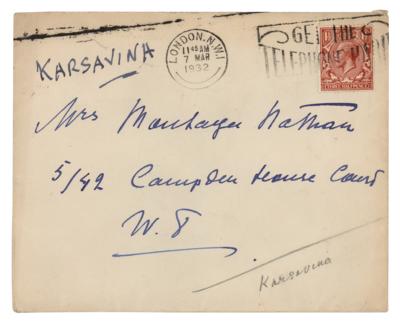 KARSAVINA
LONDON.N.W.1
11 45 AM
7 MAR
1932
GET THE
TELEPHONE HABIT
Mrs Montagu Nathan
5/42 Campden House Court
W. 8
Karsavina